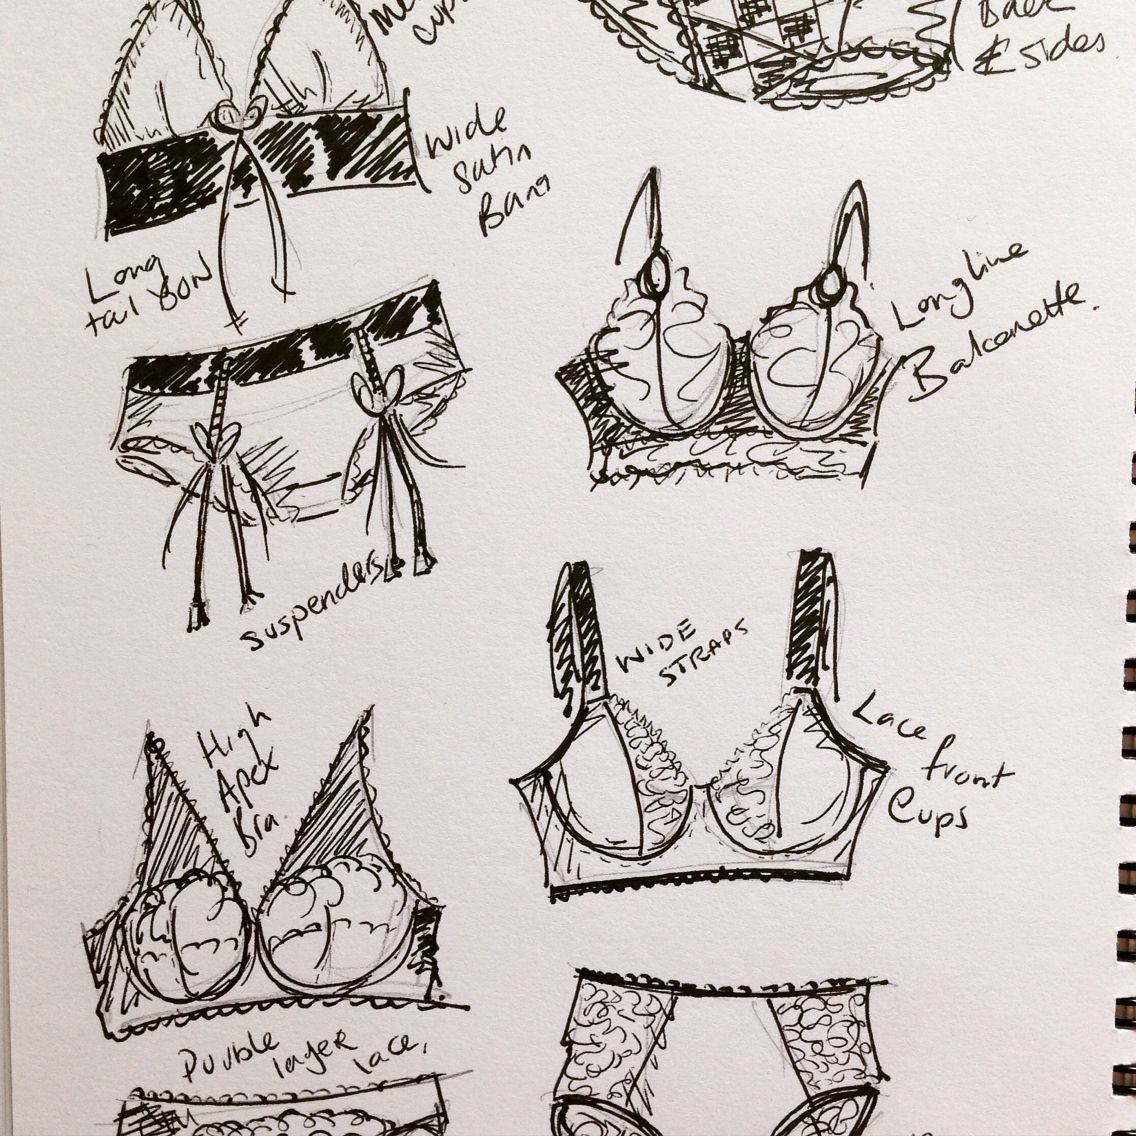 cups
Back
& sides
Wide
Satin
Band
Long
tail BOW
Longline
Balconette.
suspenders
WIDE
STRAPS
High
Apex
Bra.
Lace
front
Cups
Double
layer
lace,